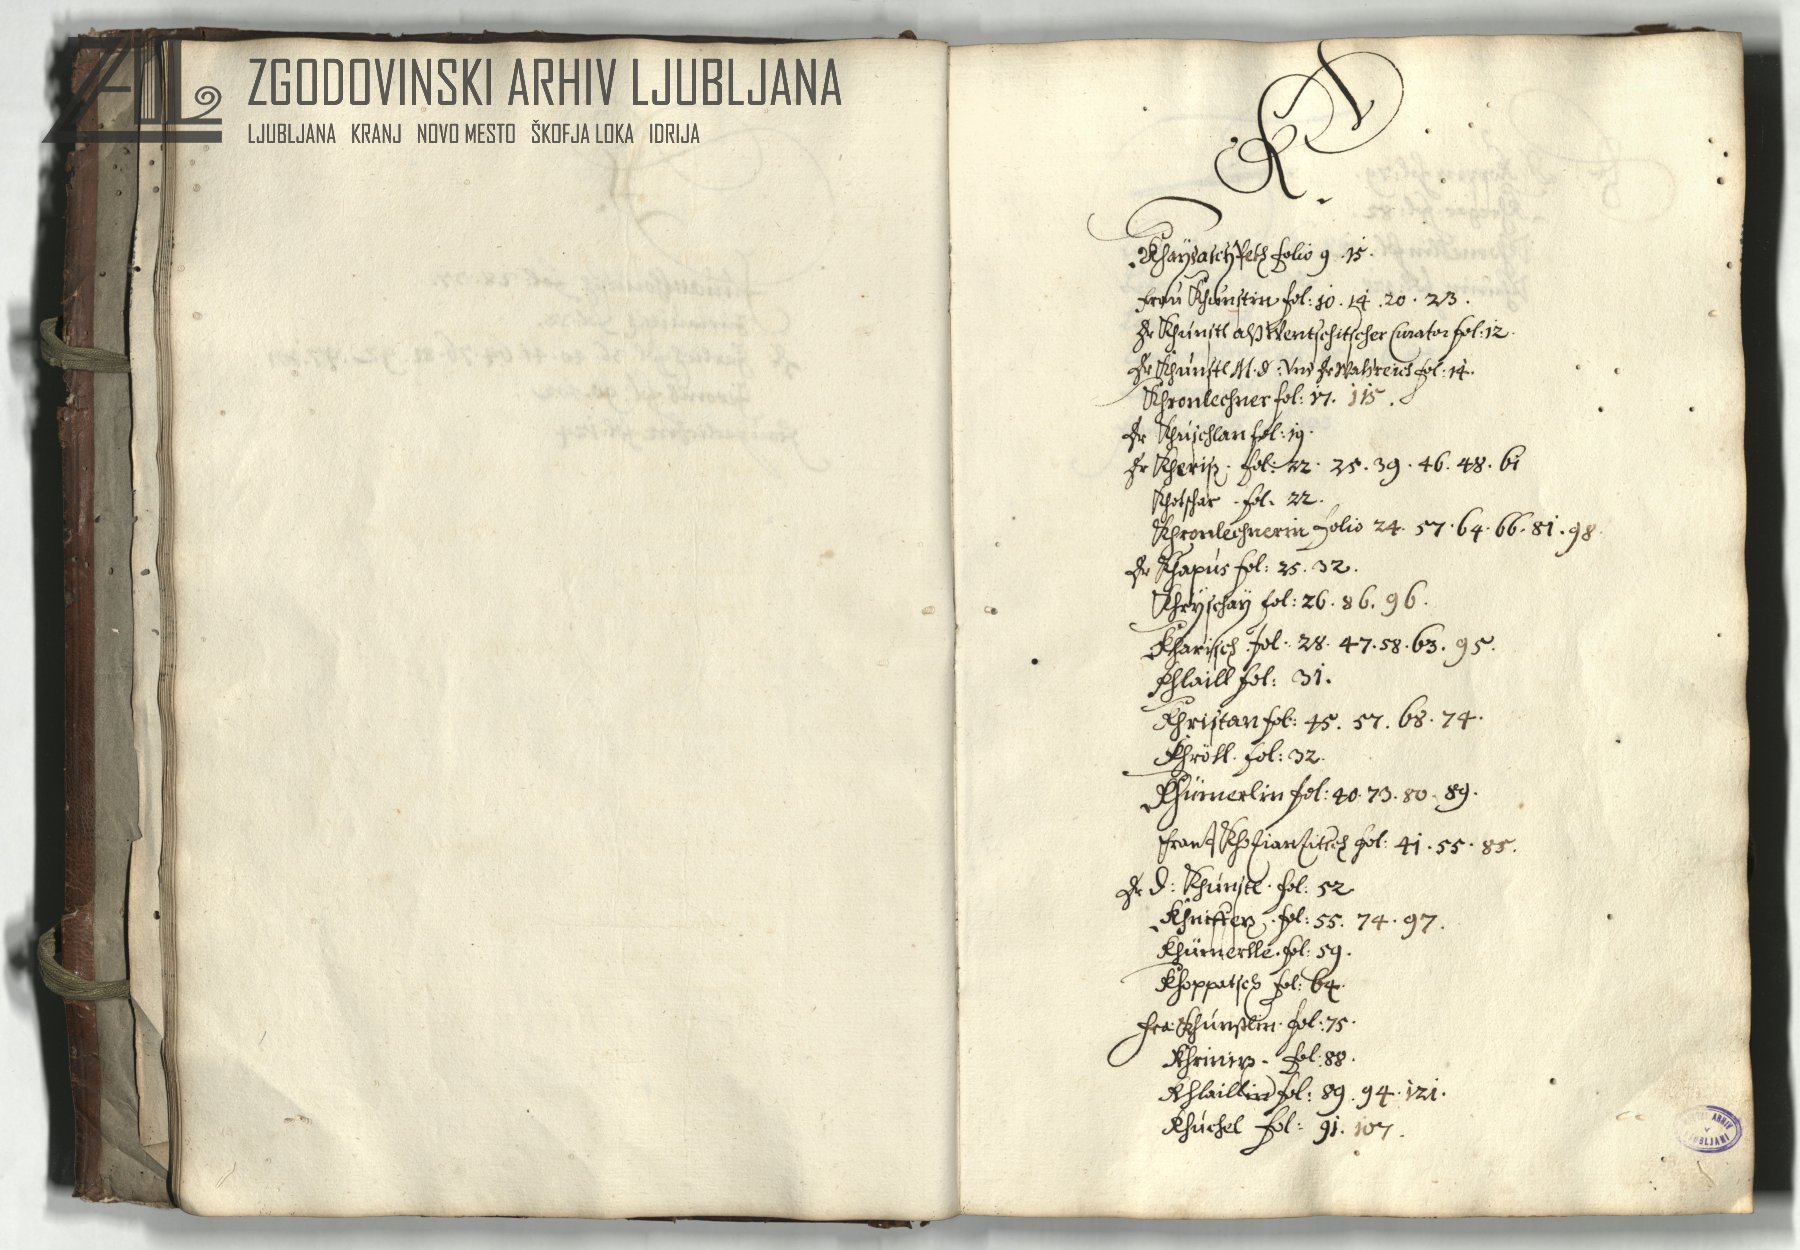 ZGODOVINSKI ARHIV LJUBLJANA
LJUBLJANA KRANJ NOVO MESTO ŠKOFJA LOKA IDRIJA
K
folio 9 . 15 .
Frau Khunstin fol: 10 . 14 . 20 . 23 .
Hr Khunstl alß Wentschitscher Curator fol: 12 .
Hr Khunstl M. d: Vnd Hr fol: 14 .
Khronlechner fol: 17 . 115 .
Hr Khuschlan fol: 19 .
Hr Kheriß . fol: 22 . 25 . 39 . 46 . 48 . 61
Khotschar . fol. 22 .
Khronlechnerin folio 24 . 57 . 64 . 66 . 81 . 98
Hr Khapus fol: 25 . 32 .
Khryschay fol: 26 . 86 . 96 .
Kharisch fol: 28 . 47 . 58 . 63 . 95 .
Khlaill fol: 31 .
Khristan fol: 45 . 57 . 68 . 74 .
Khröll . fol: 32 .
Khümerlin fol: 40 . 73 . 80 . 89 .
fol: 41 . 55 . 85 .
Hr D: Khunstl . fol: 52
fol: 55 . 74 . 97 .
Khümerlle . fol: 59 .
Khoppatsch fol: 64 .
Fra: Khunstlin . fol: 75 .
fol: 88 .
Khlaillin fol: 89 . 94 . 121 .
Khuchel fol: 91 . 107 .
ARHIV
LJUBLJANI